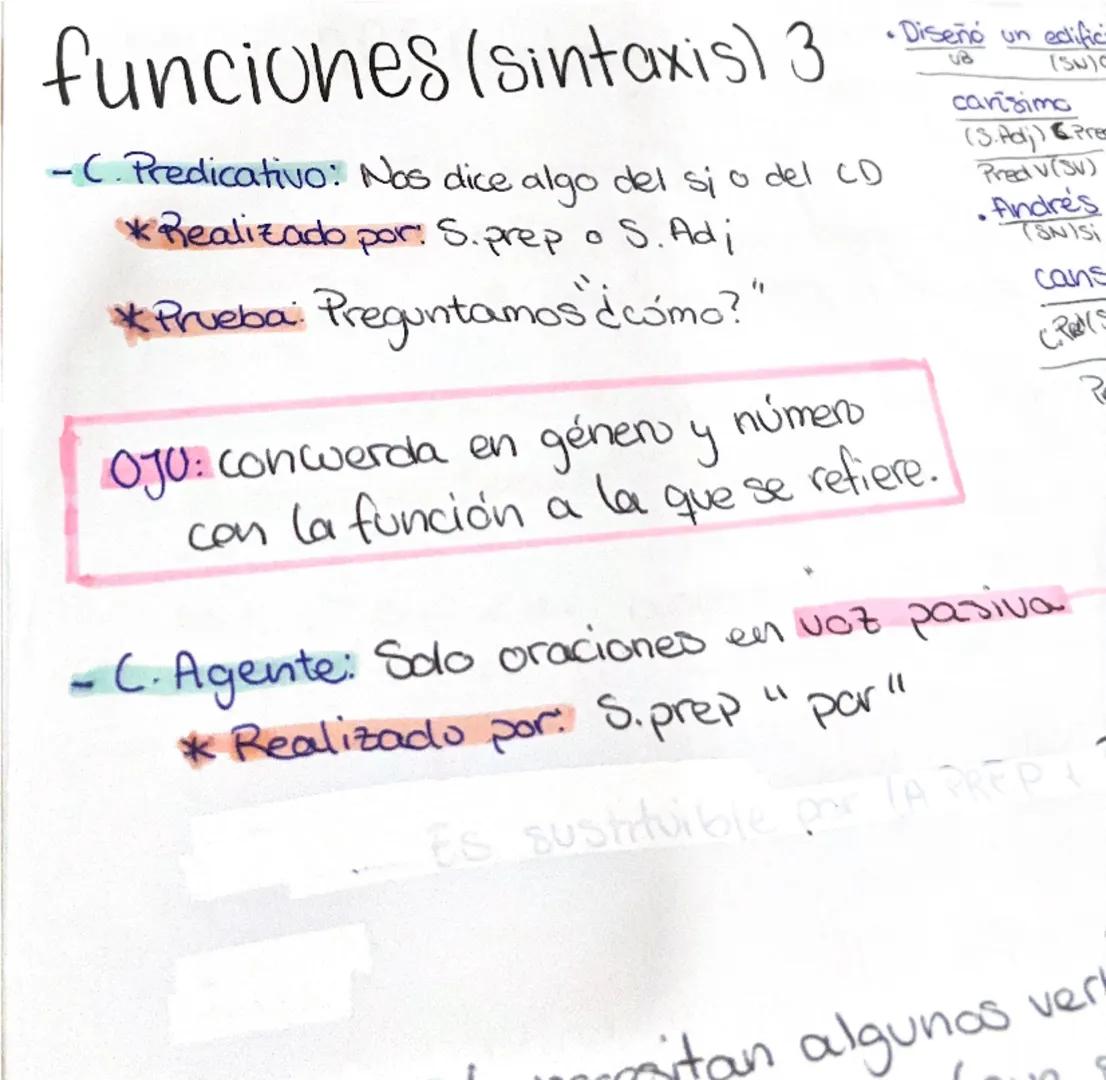 funciones (sintaxis) 3
- C. Predicativo: Nos dice algo del sj o del CD
* Realizado por: S.prep o S. Adj
* Prueba: Preguntamos "¿cómo?"
OJO: concuerda en género y número
con la función a la que se refiere.
- C. Agente: Solo oraciones en voz pasiva
* Realizado por: S.prep "por"
ES sustituible por LA PREP
algunos
• Diseñó un
VB (SN)
carísimo
(S.Adj) C Pre
Pred V(SV)
• Andrés
(SN) Sj